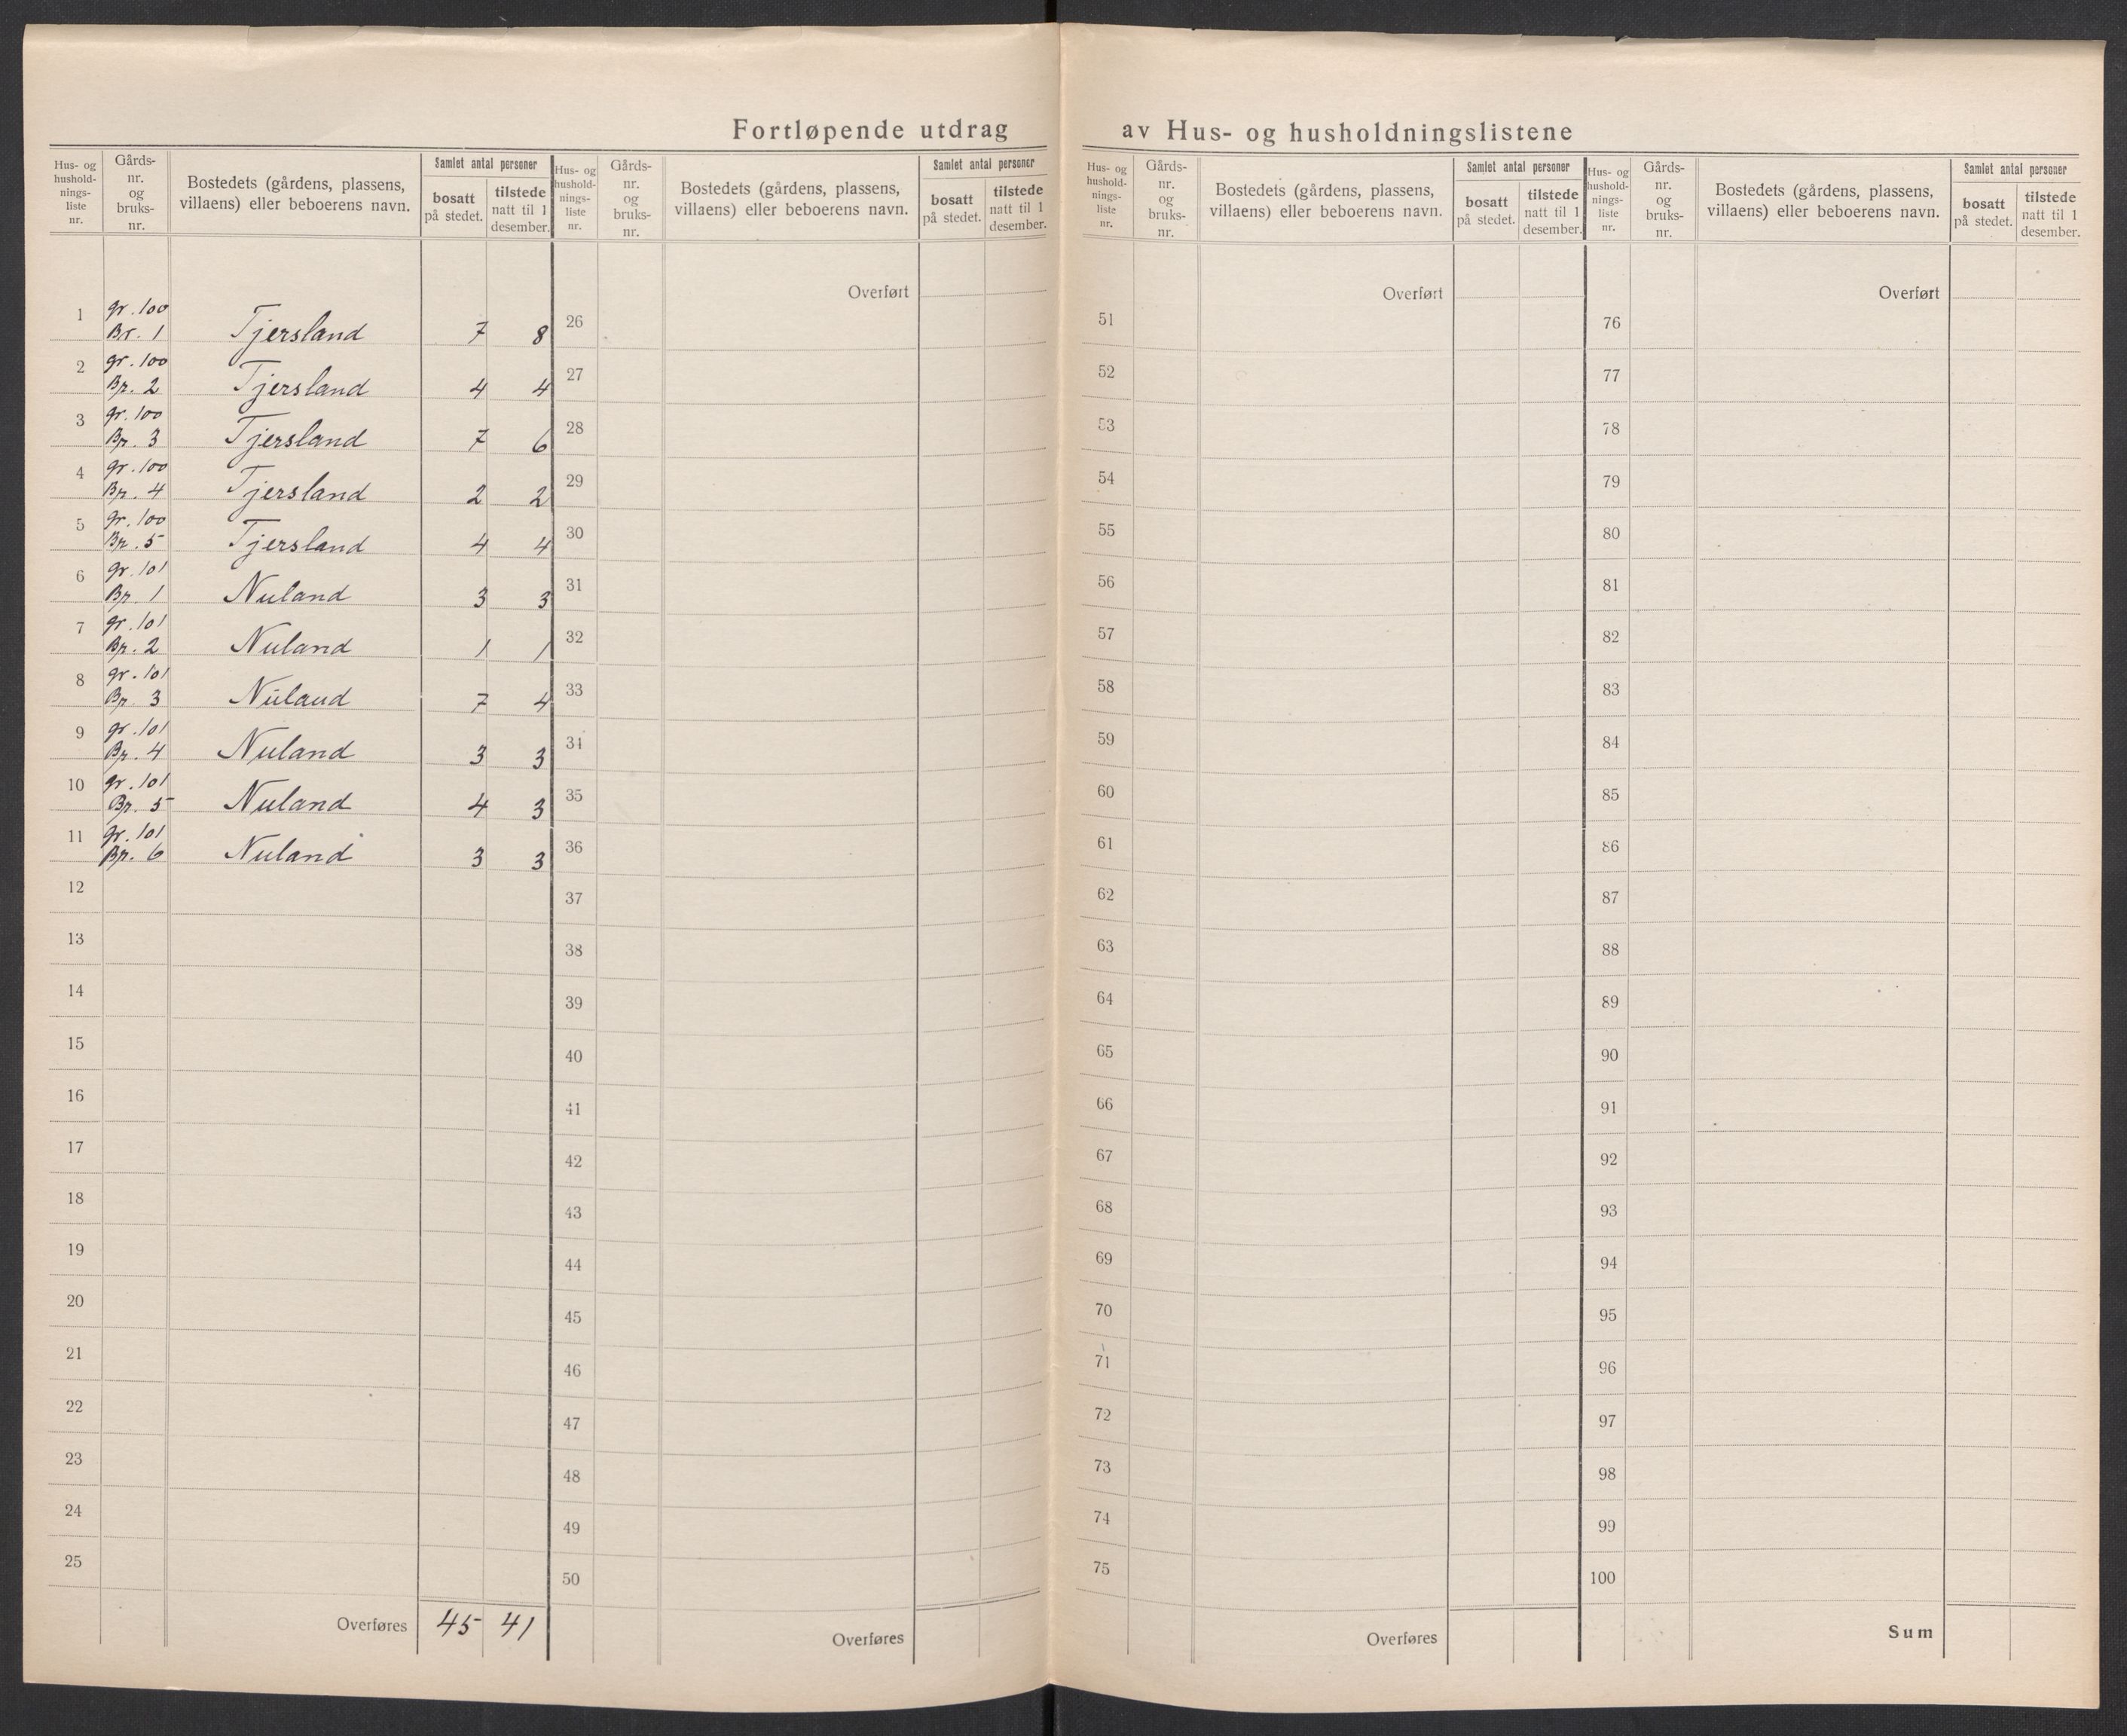 Fortløpende utdrag av Hus- og husholdningslistene
Hus- og hushold-nings-liste nr. Gårds-nr. og bruks-nr. Bostedets (gårdens, plassens, villaens) eller beboerens navn. Samlet antal personer bosatt på stedet. tilstede natt til 1 desember.
1 gr. 100 Br. 1 Tjersland 7 8
2 gr. 100 Br. 2 Tjersland 4 4
3 gr. 100 Br. 3 Tjersland 7 6
4 gr. 100 Br. 4 Tjersland 2 2
5 gr. 100 Br. 5 Tjersland 4 4
6 gr. 101 Br. 1 Nuland 3 3
7 gr. 101 Br. 2 Nuland 1 1
8 gr. 101 Br. 3 Nuland 7 4
9 gr. 101 Br. 4 Nuland 3 3
10 gr. 101 Br. 5 Nuland 4 3
11 gr. 101 Br. 6 Nuland 3 3
12
13
14
15
16
17
18
19
20
21
22
23
24
25
Overføres 45 41
Hus- og hushold-nings-liste nr. Gårds-nr. og bruks-nr. Bostedets (gårdens, plassens, villaens) eller beboerens navn. Samlet antal personer bosatt på stedet. tilstede natt til 1 desember.
Overført
26
27
28
29
30
31
32
33
34
35
36
37
38
39
40
41
42
43
44
45
46
47
48
49
50
Overføres
Hus- og hushold-nings-liste nr. Gårds-nr. og bruks-nr. Bostedets (gårdens, plassens, villaens) eller beboerens navn. Samlet antal personer bosatt på stedet. tilstede natt til 1 desember.
Overført
51
52
53
54
55
56
57
58
59
60
61
62
63
64
65
66
67
68
69
70
71
72
73
74
75
Overføres
Hus- og hushold-nings-liste nr. Gårds-nr. og bruks-nr. Bostedets (gårdens, plassens, villaens) eller beboerens navn. Samlet antal personer bosatt på stedet. tilstede natt til 1 desember.
Overført
76
77
78
79
80
81
82
83
84
85
86
87
88
89
90
91
92
93
94
95
96
97
98
99
100
Sum